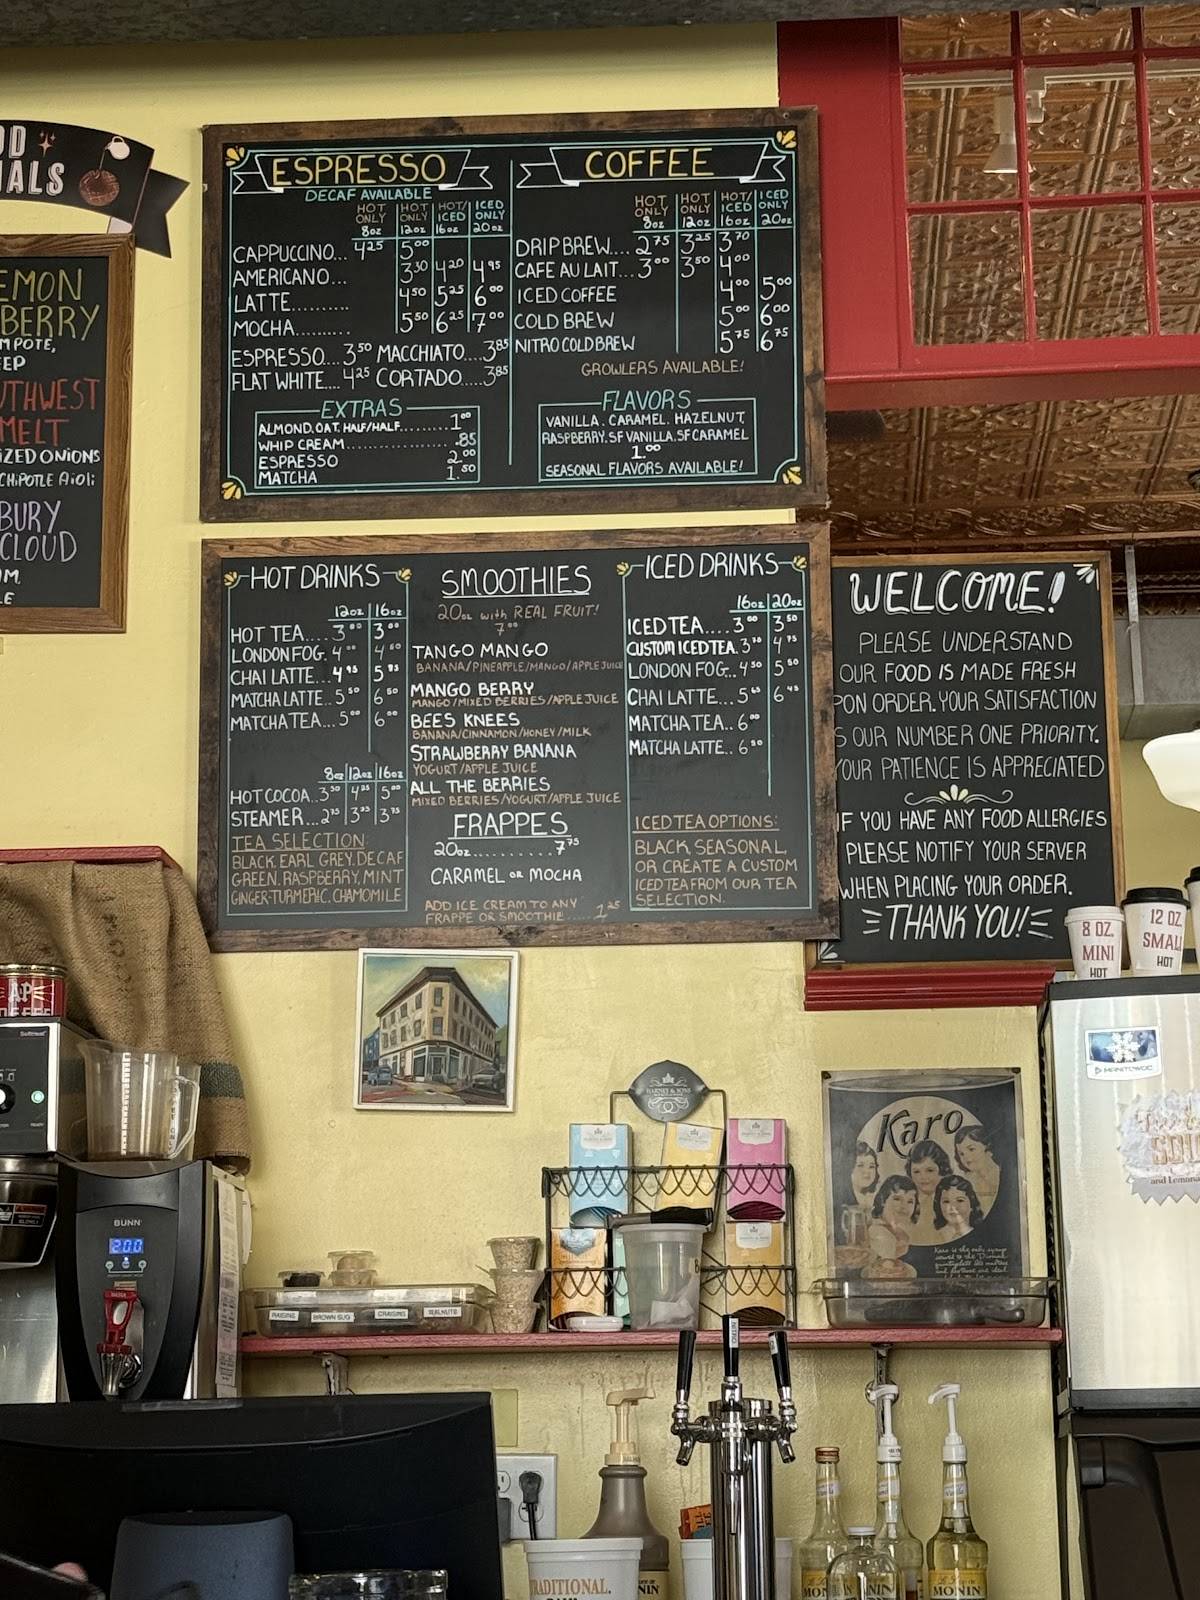 ESPRESSO
DECAF AVAILABLE
HOT ONLY 8oz HOT ONLY 12oz HOT/ICED 16oz ICED ONLY 20oz
CAPPUCCINO... 4.25 5.00
AMERICANO... 3.30 4.20 4.95
LATTE.......... 4.50 5.25 6.00
MOCHA.......... 5.50 6.25 7.00
ESPRESSO....3.50 MACCHIATO....3.85
FLAT WHITE....4.25 CORTADO.....3.85
EXTRAS
ALMOND, OAT, HALF/HALF.........1.00
WHIP CREAM........................85
ESPRESSO 2.00
MATCHA 1.50
COFFEE
HOT ONLY 8oz HOT ONLY 12oz HOT/ICED 16oz ICED ONLY 20oz
DRIP BREW.... 2.75 3.25 3.70
CAFE AU LAIT... 3.00 3.50 4.00
ICED COFFEE 4.00 5.00
COLD BREW 5.00 6.00
NITRO COLD BREW 5.75 6.75
GROWLERS AVAILABLE!
FLAVORS
VANILLA. CARAMEL. HAZELNUT.
RASPBERRY. SF VANILLA. SF CARAMEL
1.00
SEASONAL FLAVORS AVAILABLE!
HOT DRINKS
12oz 16oz
HOT TEA.... 3.00 3.00
LONDON FOG. 4
CHAI LATTE.... 4.95
MATCHA LATTE.. 5.50 6.50
MATCHA TEA... 5.00 6.00
8oz 12oz 16oz
HOT COCOA.. 3.50 5.00
STEAMER...
TEA SELECTION:
BLACK, EARL GREY, DECAF
GREEN, RASPBERRY, MINT
GINGER-TURMERIC, CHAMOMILE
SMOOTHIES
20oz with REAL FRUIT!
7.00
TANGO MANGO
BANANA/PINEAPPLE/MANGO/APPLE JUICE
MANGO BERRY
MANGO/MIXED BERRIES/APPLE JUICE
BEES KNEES
BANANA/CINNAMON/HONEY/MILK
STRAWBERRY BANANA
YOGURT/APPLE JUICE
ALL THE BERRIES
MIXED BERRIES/YOGURT/APPLE JUICE
FRAPPES
20oz..........7.75
CARAMEL OR MOCHA
ADD ICE CREAM TO ANY
FRAPPE OR SMOOTHIE......1.25
ICED DRINKS
16oz 20oz
ICED TEA.... 3.00 3.50
CUSTOM ICED TEA. 4.75
LONDON FOG... 4.50 5.50
CHAI LATTE...
MATCHA TEA.. 6.00
MATCHA LATTE.. 6.50
ICED TEA OPTIONS:
BLACK, SEASONAL,
OR CREATE A CUSTOM
ICED TEA FROM OUR TEA
SELECTION.
WELCOME!
PLEASE UNDERSTAND
OUR FOOD IS MADE FRESH
PON ORDER. YOUR SATISFACTION
S OUR NUMBER ONE PRIORITY.
YOUR PATIENCE IS APPRECIATED
IF YOU HAVE ANY FOOD ALLERGIES
PLEASE NOTIFY YOUR SERVER
WHEN PLACING YOUR ORDER.
THANK YOU!
OD
IALS
EMON
BERRY
MPOTE,
EEP
UTHWEST
MELT
IZED ONIONS
CHIPOTLE Aioli
BURY
CLOUD
8 OZ.
MINI
HOT
12 OZ
SMALL
HOT
MANITOWOC
HARNEY & SONS
Karo
BUNN
200
RAISINS
BROWN SUG
CRAISINS
WALNUTS
TRADITIONAL
MONIN
MONIN
MONIN